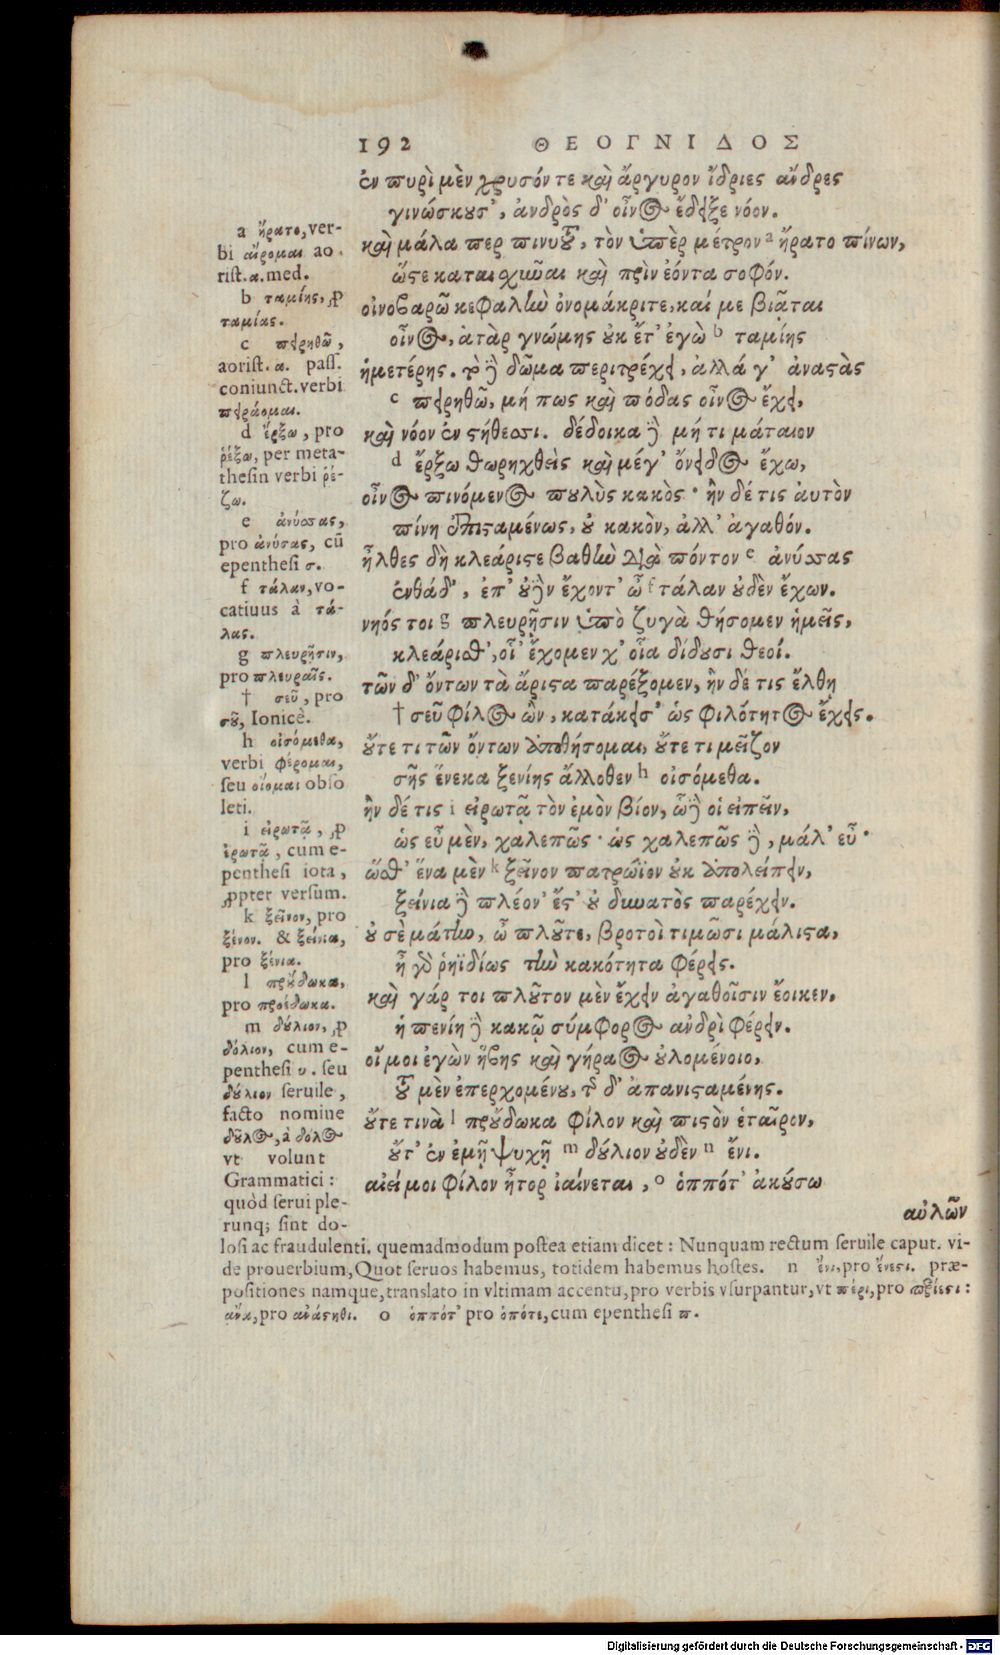 192 ΘΕΟΓΝΙΔΟΣ
ἐν πυρὶ μὲν χρυσόν τε καὶ ἄργυρον ἴδριες ἄνδρες
γινώσκουσ', ἀνδρὸς δ' οἶνος ἔδειξε νόον.
καὶ μάλα περ πινυτοῦ, τὸν ὑπὲρ μέτρον a ἤρατο πίνων,
ὥστε καταισχῦναι καὶ πρὶν ἐόντα σοφόν.
οἰνοβαρῶ κεφαλὴν ὀνομάκριτε, καί με βιᾶται
οἶνος, ἀτὰρ γνώμης οὐκ ἔτ' ἐγὼ b ταμίης
ἡμετέρης. τὸ δὲ δῶμα περιτρέχει, ἀλλά γ' ἀναστὰς
c πειρηθῶ, μή πως καὶ πόδας οἶνος ἔχει,
καὶ νόον ἐν στήθεσσι. δέδοικα δὲ μή τι μάταιον
d ἔρξω θωρηχθεὶς καὶ μέγ' ὄνειδος ἔχω,
οἶνος πινόμενος πουλὺς κακός· ἢν δέ τις αὐτὸν
πίνῃ ἐπισταμένως, οὐ κακὸν, ἀλλ' ἀγαθόν.
ἦλθες δὴ κλεάριστε βαθὺν διὰ πόντον e ἀνύσσας
ἐνθάδ', ἐπ' οὐδὲν ἔχοντ' ὦ f τάλαν οὐδὲν ἔχων.
νηός τοι g πλευρῇσιν ὑπὸ ζυγὰ θήσομεν ἡμεῖς,
κλεάρισθ', οἷ' ἔχομεν χ' οἷα δίδουσι θεοί.
τῶν δ' ὄντων τὰ ἄριστα παρέξομεν, ἢν δέ τις ἔλθῃ
† σεῦ φίλος ὢν, κατάκεισ' ὡς φιλότητος ἔχεις.
οὔτε τι τῶν ὄντων ἀποθήσομαι, οὔτε τι μεῖζον
σῆς ἕνεκα ξενίης ἄλλοθεν h οἰσόμεθα.
ἢν δέ τις i εἰρωτᾷ τὸν ἐμὸν βίον, ὧδὲ οἱ εἰπεῖν,
ὡς εὖ μὲν, χαλεπῶς· ὡς χαλεπῶς δὲ, μάλ' εὖ·
ὥσθ' ἕνα μὲν k ξεῖνον πατρώϊον οὐκ ἀπολείπειν,
ξείνια δὲ πλέον' ἔστ' οὐ δυνατὸς παρέχειν.
οὐ σὲ μάτην, ὦ πλοῦτε, βροτοὶ τιμῶσι μάλιστα,
ἦ γὰρ ῥηϊδίως τὴν κακότητα φέρεις.
καὶ γάρ τοι πλοῦτον μὲν ἔχειν ἀγαθοῖσιν ἔοικεν,
ἡ πενίη δὲ κακῷ σύμφορος ἀνδρὶ φέρειν.
οἴ μοι ἐγὼν ἥβης καὶ γήραος οὐλομένοιο,
τοῦ μὲν ἐπερχομένου, τῆς δ' ἀπανισταμένης.
οὔτε τινὰ l προὔδωκα φίλον καὶ πιστὸν ἑταῖρον,
οὔτ' ἐν ἐμῇ ψυχῇ m δούλιον οὐδὲν n ἔνι.
αἰεί μοι φίλον ἦτορ ἰαίνεται, o ὁππότ' ἀκούσω
αὐλῶν
a ἤρατο, ver-
bi αἴρομαι ao
rist. α. med.
b ταμίης, p
ταμίας.
c πειρηθῶ,
aorist. α. pass.
coniunct. verbi
πειράομαι.
d ἔρξω, pro
ῥέξω, per meta-
thesin verbi ῥέ-
ζω.
e ἀνύσσας,
pro ἀνύσας, cũ
epenthesi σ.
f τάλαν, vo-
catiuus à τά-
λας.
g πλευρῇσιν,
pro πλευραῖς.
† σεῦ, pro
σοῦ, Ionicè.
h οἰσόμεθα,
verbi φέρομαι,
seu οἴομαι obso
leti.
i εἰρωτᾷ, p
ἐρωτᾷ, cum e-
penthesi iota,
ppter versum.
k ξεῖνον, pro
ξένον. & ξείνια,
pro ξένια.
l προὔδωκα,
pro προέδωκα.
m δούλιον, p
δόλιον, cum e-
penthesi υ. seu
δούλιον seruile,
facto nomine
δοῦλος, à δόλος
vt volunt
Grammatici:
quòd serui ple-
runq; sint do-
losi ac fraudulenti. quemadmodum postea etiam dicet: Nunquam rectum seruile caput. vi-
de prouerbium, Quot seruos habemus, totidem habemus hostes. n ἔνι, pro ἔνεστι. præ-
positiones namque, translato in vltimam accentu, pro verbis vsurpantur, vt πέρι, pro περίεστι:
ἄνα, pro ἀνάστηθι. o ὁππότ' pro ὁπότε, cum epenthesi π.
Digitalisierung gefördert durch die Deutsche Forschungsgemeinschaft - DFG